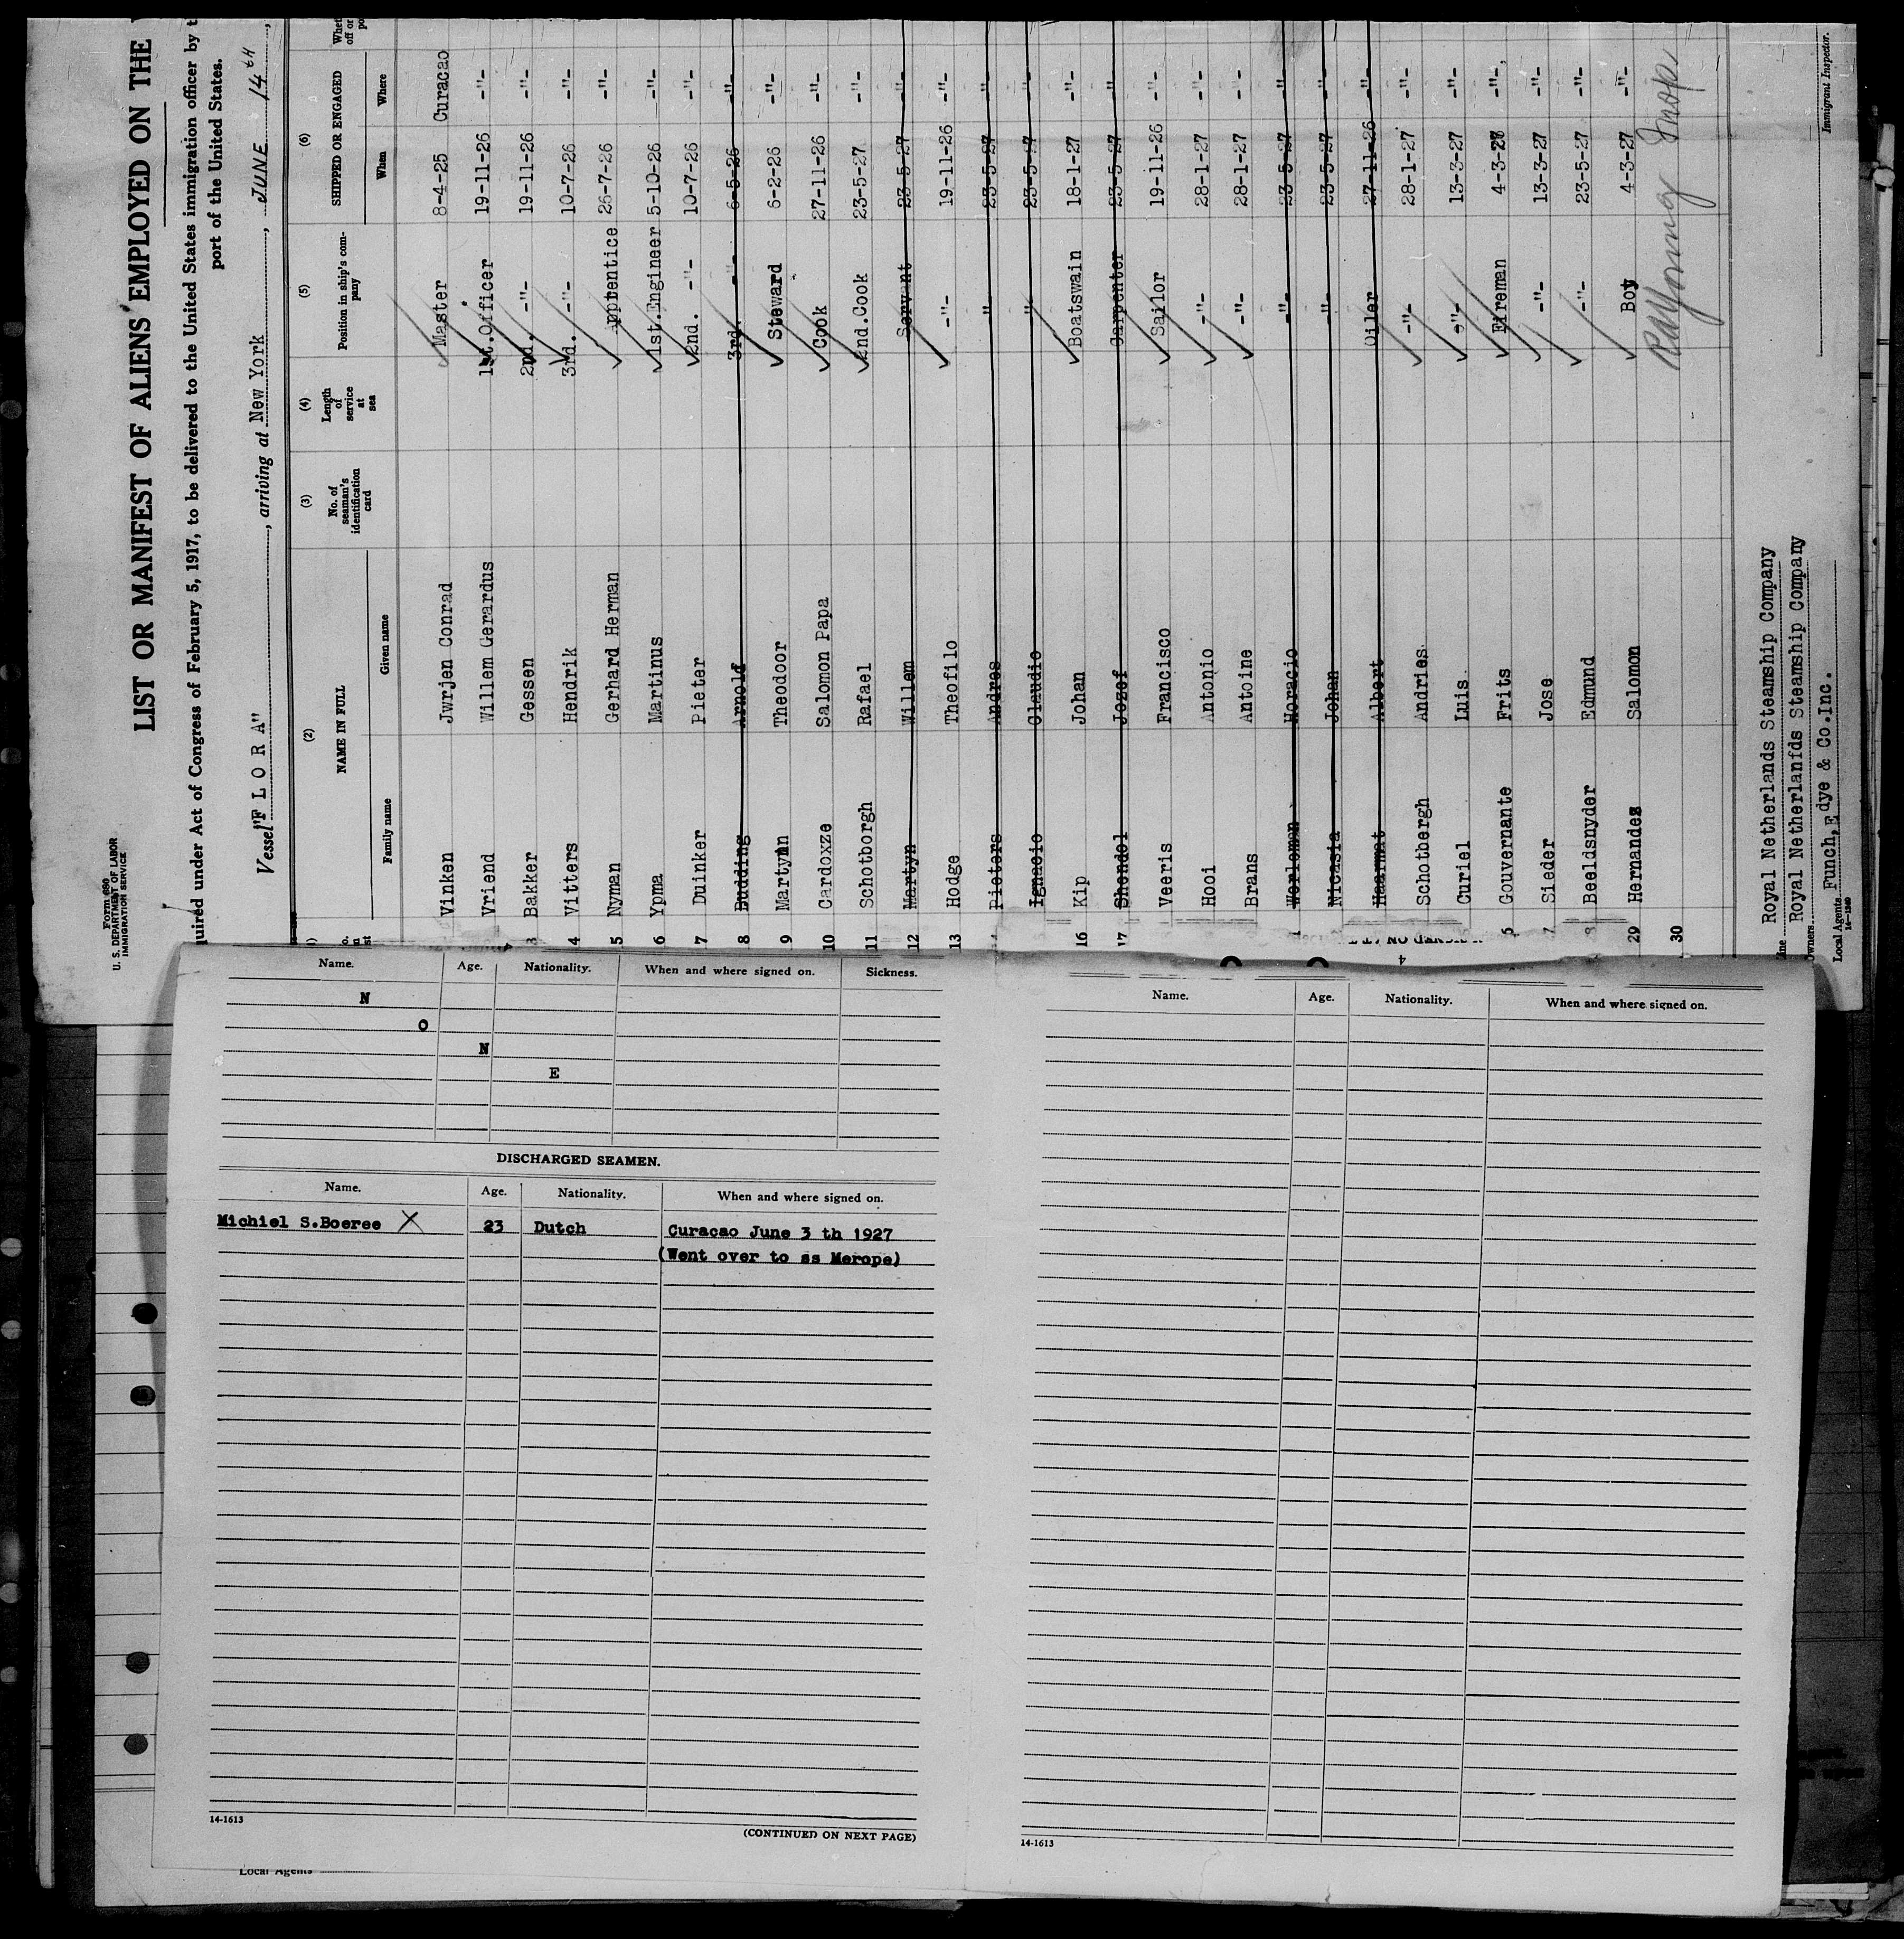 Form 680
U. S. DEPARTMENT OF LABOR
IMMIGRATION SERVICE
LIST OR MANIFEST OF ALIENS EMPLOYED ON THE
quired under Act of Congress of February 5, 1917, to be delivered to the United States immigration officer by t
port of the United States.
Vessel "F L O R A", arriving at New York, JUNE 14th,
(2) (3) (4) (5) (6)
NAME IN FULL No. of seaman's identification card Length of service at sea Position in ship's company SHIPPED OR ENGAGED
Family name Given name When Where
Vinken Jwrjen Conrad Master 8-4-25 Curacao
Vriend Willem Gerardus 1st.Officer 19-11-26 -"-
3 Bakker Gessen 2nd. -"- 19-11-26 -"-
4 Vitters Hendrik 3rd. -"- 10-7-26 -"-
5 Nyman Gerhard Herman Apprentice 26-7-26 -"-
6 Ypma Martinus 1st.Engineer 5-10-26 -"-
7 Duinker Pieter 2nd. -"- 10-7-26 -"-
8 Budding Arnold 3rd. -"- 6-5-26 -"-
9 Martyn Theodoor Steward 6-2-26 -"-
10 Cardoxze Salomon Papa Cook 27-11-26 -"-
11 Schotborgh Rafael 2nd.Cook 23-5-27 -"-
12 Martyn Willem Servant 23-5-27 -"-
13 Hodge Theofilo -"- 19-11-26 -"-
Pieters Andres -"- 23-5-27 -"-
Ignacio Claudio -"- 23-5-27 -"-
16 Kip Johan Boatswain 18-1-27 -"-
17 Shendel Jozef Carpenter 23-5-27 -"-
Veeris Francisco Sailor 19-11-26 -"-
Hooi Antonio -"- 28-1-27 -"-
Brans Antoine -"- 28-1-27 -"-
Werleman Horacio -"- 23-5-27 -"-
Nicasia Johan -"- 23-5-27 -"-
Haarmat Albert Oiler 27-11-26 -"-
Schotbergh Andries -"- 28-1-27 -"-
Curiel Luis -"- 13-3-27 -"-
Gouvernante Frits Fireman 4-3-27 -"-,
Sieder Jose -"- 13-3-27 -"-
Beeldsnyder Edmund -"- 23-5-27 -"-
29 Hernandez Salomon Boy 4-3-27 -"-
30
Immigrant Inspector.
Line Royal Netherlands Steamship Company
Owners Royal Netherlanfds Steamship Company
Local Agents Funch, Edye & Co.Inc.
Name. Age. Nationality. When and where signed on. Sickness.
N
O
N
E
DISCHARGED SEAMEN.
Name. Age. Nationality. When and where signed on.
Michiel S.Boeree X 23 Dutch Curacao June 3 th 1927
(Went over to ss Merope)
14-1613
(CONTINUED ON NEXT PAGE)
Local Agents
Name. Age. Nationality. When and where signed on.
14-1613